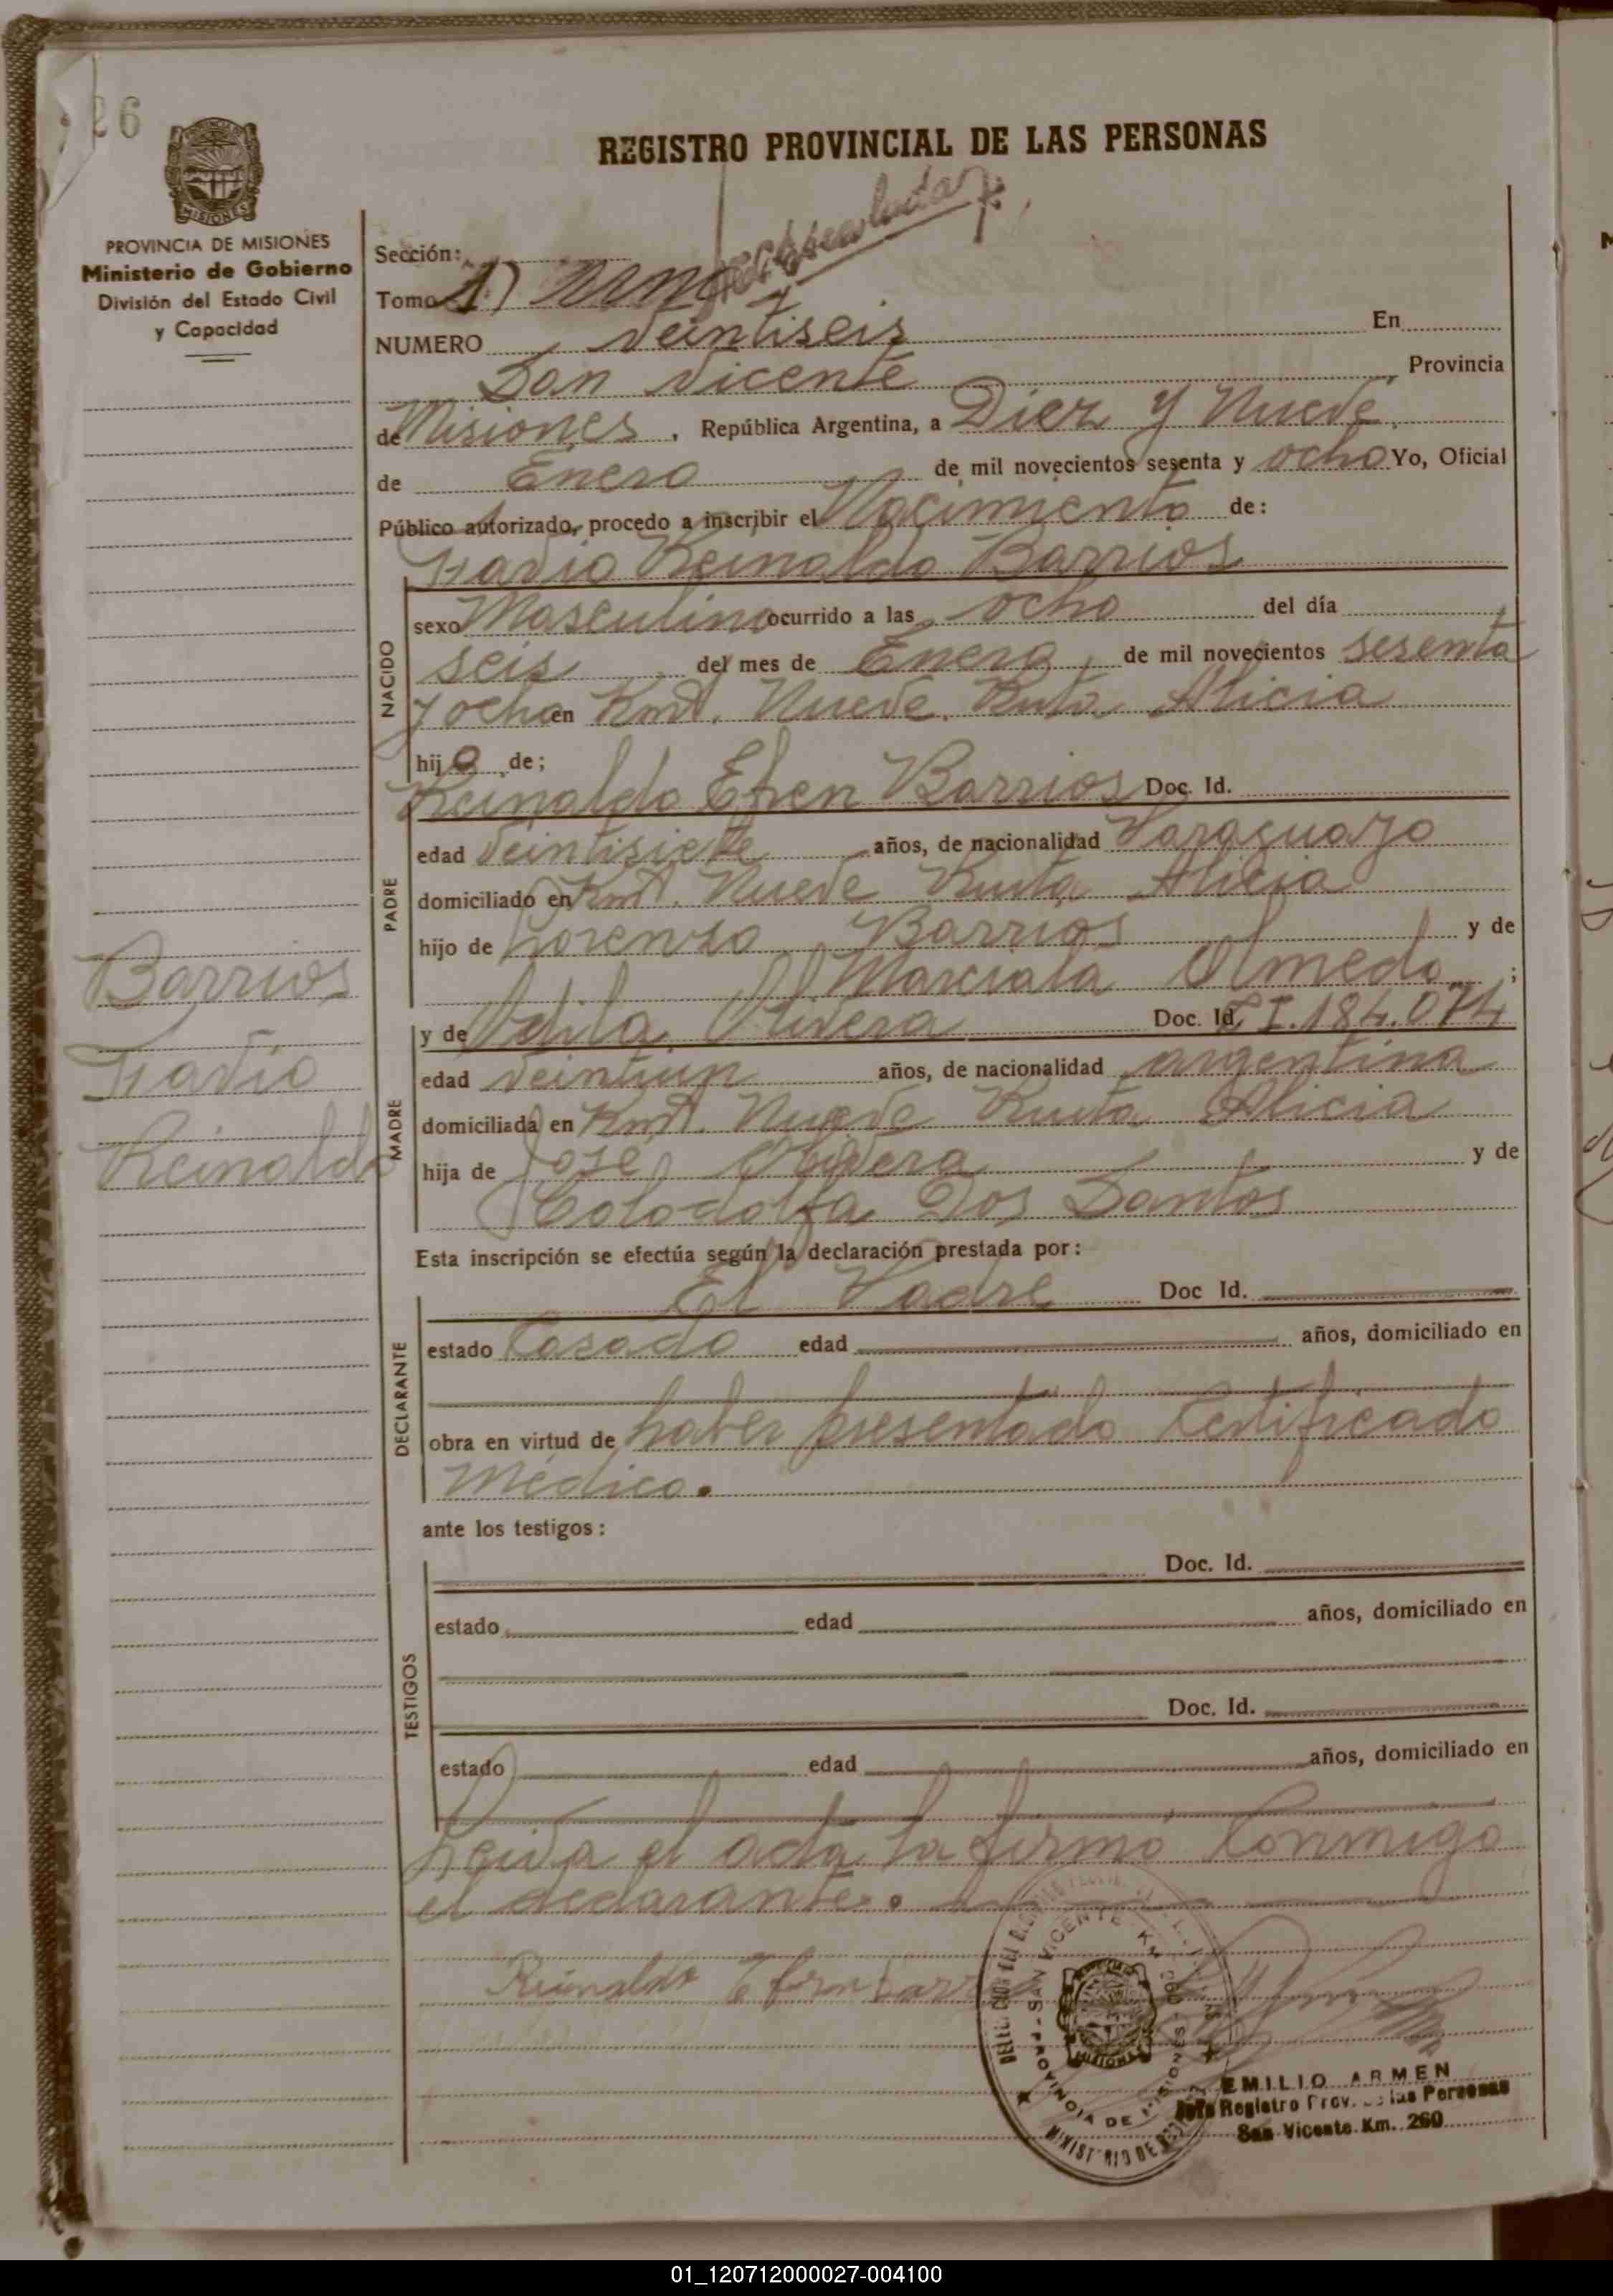 26
REGISTRO PROVINCIAL DE LAS PERSONAS
MISIONES
PROVINCIA DE MISIONES
Ministerio de Gobierno
División del Estado Civil
y Capacidad
Sección:
Tomo 1) uno
NUMERO Veintiseis En
San Vicente Provincia
de Misiones, República Argentina, a Diez y Nueve
de Enero de mil novecientos sesenta y ocho Yo, Oficial
Público autorizado, procedo a inscribir el Nacimiento de:
Reinaldo Barrios
NACIDO
sexo Masculino ocurrido a las ocho del día
seis del mes de Enero, de mil novecientos sesenta
y ocho en Kmt. Nueve. Ruta Alicia
hijo de;
PADRE
Reinaldo Efren Barrios Doc. Id.
edad Veintisiete años, de nacionalidad Paraguayo
domiciliado en Kmt. Nueve Ruta Alicia
hijo de Lorenzo Barrios y de
Marciala Olmedo;
Barrios
Reinaldo
MADRE
y de Odila Olivera Doc. Id. 184.074
edad Veintiun años, de nacionalidad argentina
domiciliada en Kmt. Nueve Ruta Alicia
hija de José Olivera y de
Dos Santos
Esta inscripción se efectúa según la declaración prestada por:
DECLARANTE
El Padre Doc Id.
estado Casado edad años, domiciliado en
obra en virtud de haber presentado Certificado
Médico.
ante los testigos:
TESTIGOS
Doc. Id.
estado edad años, domiciliado en
Doc. Id.
estado edad años, domiciliado en
Leida el acta la firmó Conmigo
el declarante.
Reinaldo Efren
SAN VICENTE
PROVINCIA DE MISIONES
EMILIO ARMEN
Jefe Registro Prov. de las Personas
San Vicente Km. 260
01_120712000027-004100